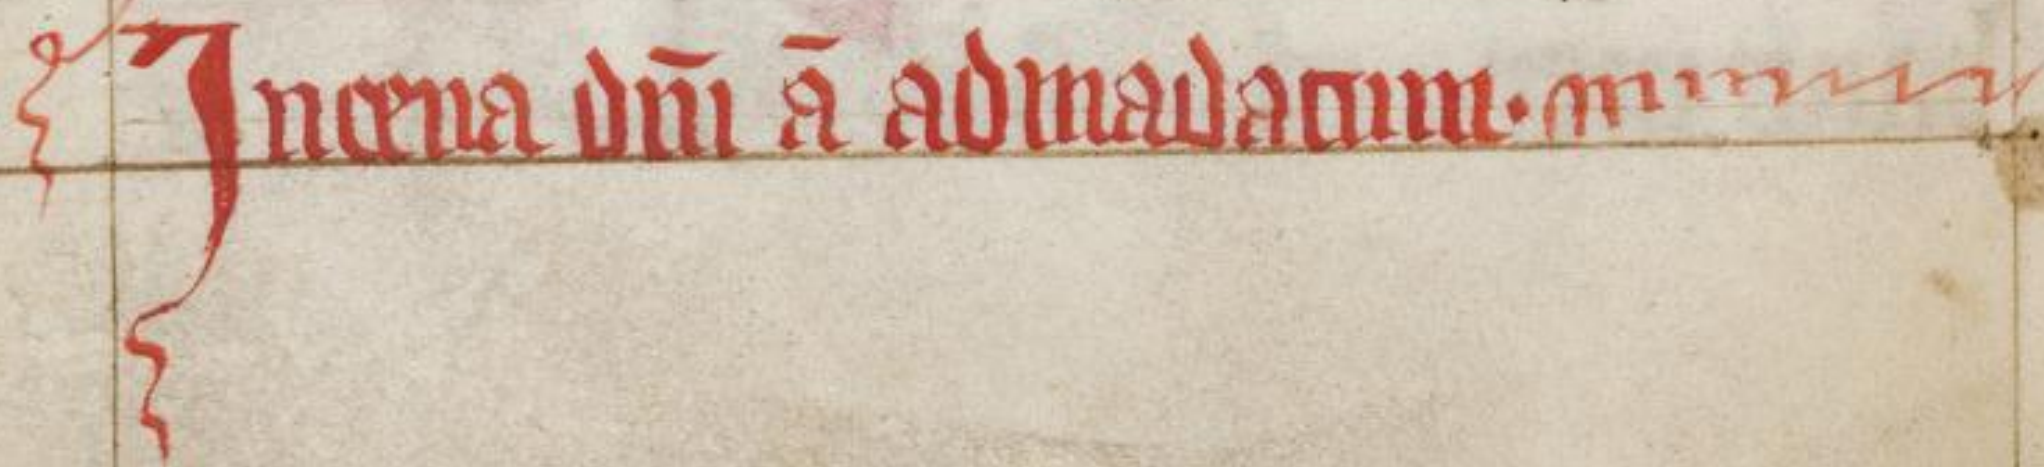 Incena dn̄i ā admadatum.